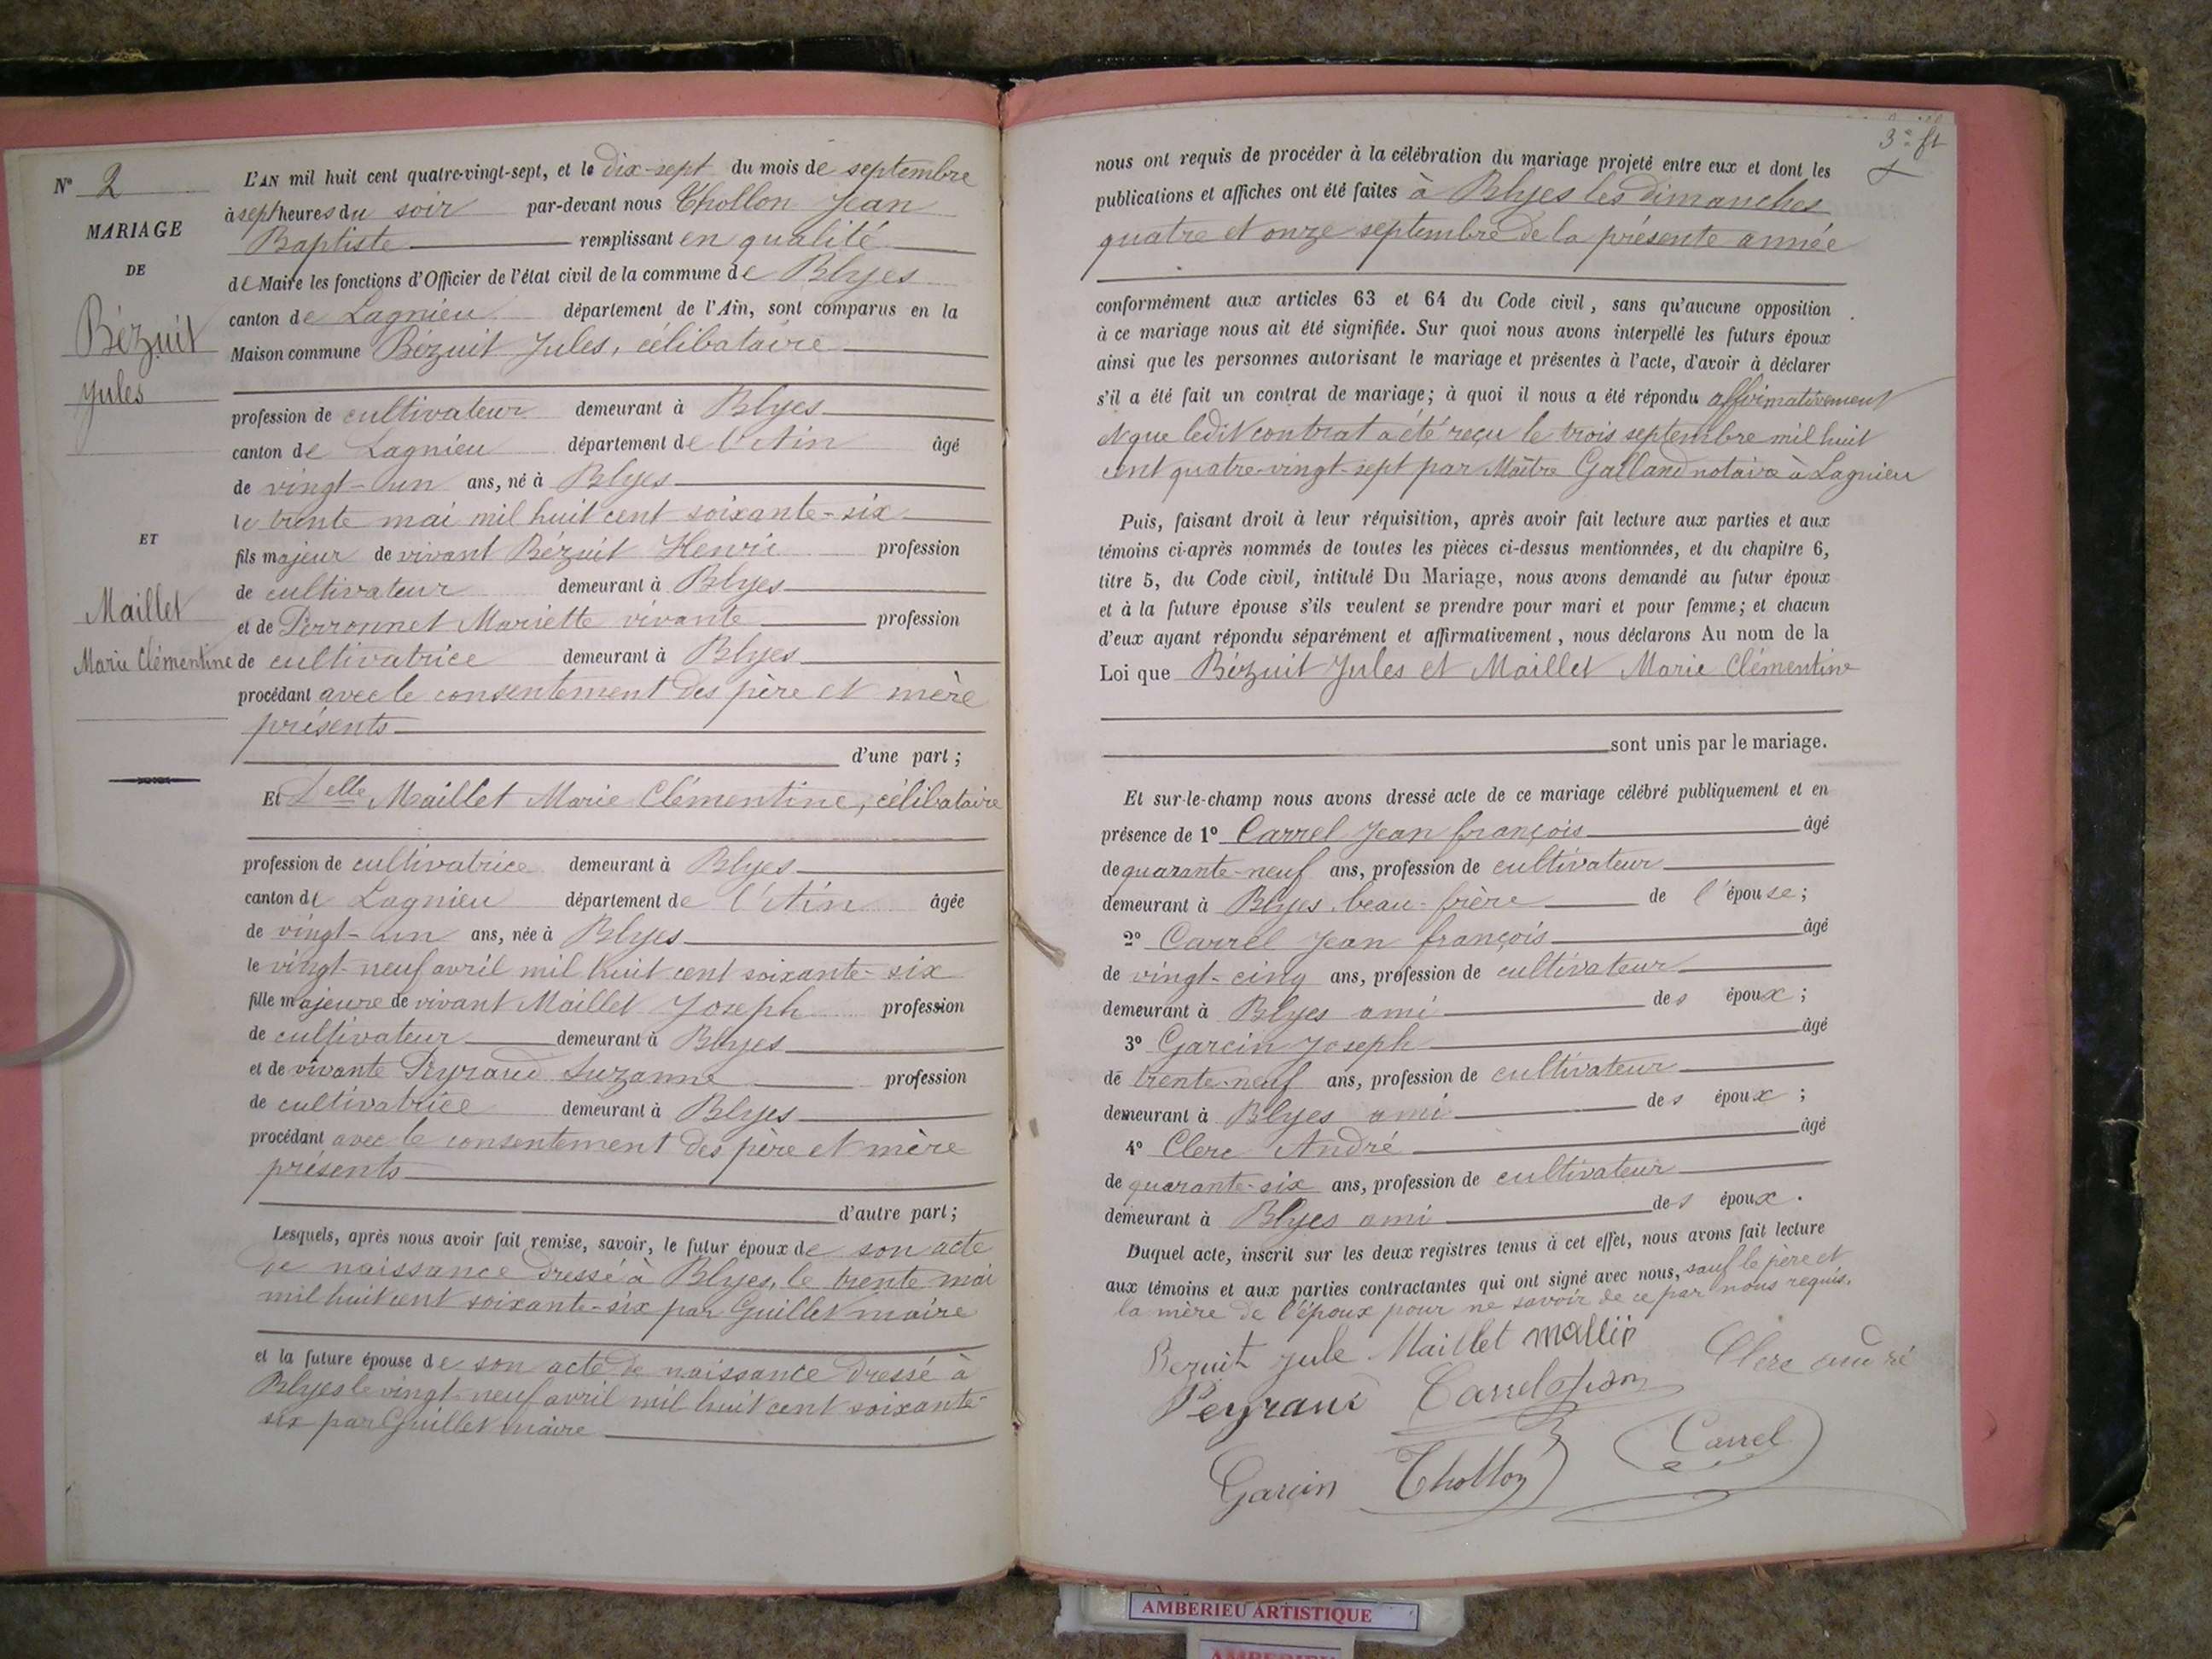 N° 2
MARIAGE
DE
Bézuit
Jules
ET
Maillet
Marie Clémentine
L'AN mil huit cent quatre-vingt-sept, et le dix-sept du mois de septembre
à sept heures du soir par-devant nous Thollon Jean
Baptiste remplissant en qualité
de Maire les fonctions d'Officier de l'état civil de la commune de Blyes
canton de Lagnieu département de l'Ain, sont comparus en la
Maison commune Bézuit Jules, célibataire
profession de cultivateur demeurant à Blyes
canton de Lagnieu département de l'Ain âgé
de vingt-un ans, né à Blyes
le trente mai mil huit cent soixante-six
fils majeur de vivant Bézuit Henri profession
de cultivateur demeurant à Blyes
et de Perronnet Mariette vivante profession
de cultivatrice demeurant à Blyes
procédant avec le consentement des père et mère
présents
d'une part;
Et Delle Maillet Marie Clémentine, célibataire
profession de cultivatrice demeurant à Blyes
canton de Lagnieu département de l'Ain âgée
de vingt-un ans, née à Blyes
le vingt-neuf avril mil huit cent soixante-six
fille majeure de vivant Maillet Joseph profession
de cultivateur demeurant à Blyes
et de vivante Peyraud Suzanne profession
de cultivatrice demeurant à Blyes
procédant avec le consentement des père et mère
présents
d'autre part;
Lesquels, après nous avoir fait remise, savoir, le futur époux de son acte
de naissance dressé à Blyes, le trente mai
mil huit cent soixante-six par Guillet maire
et la future épouse de son acte de naissance dressé à
Blyes le vingt-neuf avril mil huit cent soixante-
six par Guillet maire
3e ft
nous ont requis de procéder à la célébration du mariage projeté entre eux et dont les
publications et affiches ont été faites à Blyes les dimanches
quatre et onze septembre de la présente année
conformément aux articles 63 et 64 du Code civil, sans qu'aucune opposition
à ce mariage nous ait été signifiée. Sur quoi nous avons interpellé les futurs époux
ainsi que les personnes autorisant le mariage et présentes à l'acte, d'avoir à déclarer
s'il a été fait un contrat de mariage; à quoi il nous a été répondu affirmativement
et que ledit contrat a été reçu le trois septembre mil huit
cent quatre-vingt-sept par Maître Galland notaire à Lagnieu
Puis, faisant droit à leur réquisition, après avoir fait lecture aux parties et aux
témoins ci-après nommés de toutes les pièces ci-dessus mentionnées, et du chapitre 6,
titre 5, du Code civil, intitulé Du Mariage, nous avons demandé au futur époux
et à la future épouse s'ils veulent se prendre pour mari et pour femme; et chacun
d'eux ayant répondu séparément et affirmativement, nous déclarons Au nom de la
Loi que Bézuit Jules et Maillet Marie Clémentine
sont unis par le mariage.
Et sur-le-champ nous avons dressé acte de ce mariage célébré publiquement et en
présence de 1° Carrel Jean françois âgé
de quarante-neuf ans, profession de cultivateur
demeurant à Blyes, beau-frère de l'épouse;
2° Carrel Jean françois âgé
de vingt-cinq ans, profession de cultivateur
demeurant à Blyes ami des époux;
3° Garcin Joseph âgé
de trente-neuf ans, profession de cultivateur
demeurant à Blyes ami des époux;
4° Clerc André âgé
de quarante-six ans, profession de cultivateur
demeurant à Blyes ami des époux.
Duquel acte, inscrit sur les deux registres tenus à cet effet, nous avons fait lecture
aux témoins et aux parties contractantes qui ont signé avec nous, sauf le père et
la mère de l'époux pour ne savoir de ce par nous requis.
Bezuit jule Maillet mallip Clerc andré
Peyraud Carrel
Garcin Thollon Carrel
AMBERIEU ARTISTIQUE
AMBERIEU